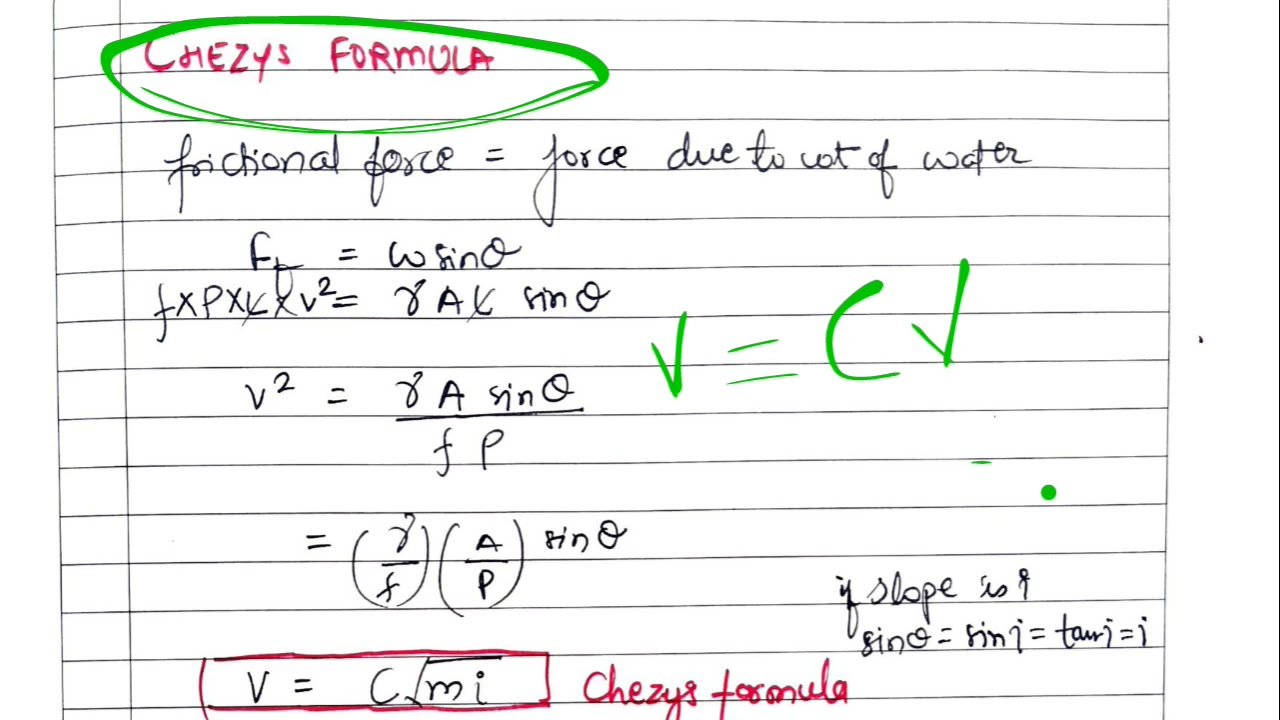 CHEZYS FORMULA
frictional force = force due to wt of water
Ff = w sinθ
f×P×L×v² = γ A L sinθ
V = C√
v² = γ A sinθ / f P
= (γ/f) (A/P) sinθ
if slope is i
sinθ = sin i = tan i = i
V = C√mi Chezys formula